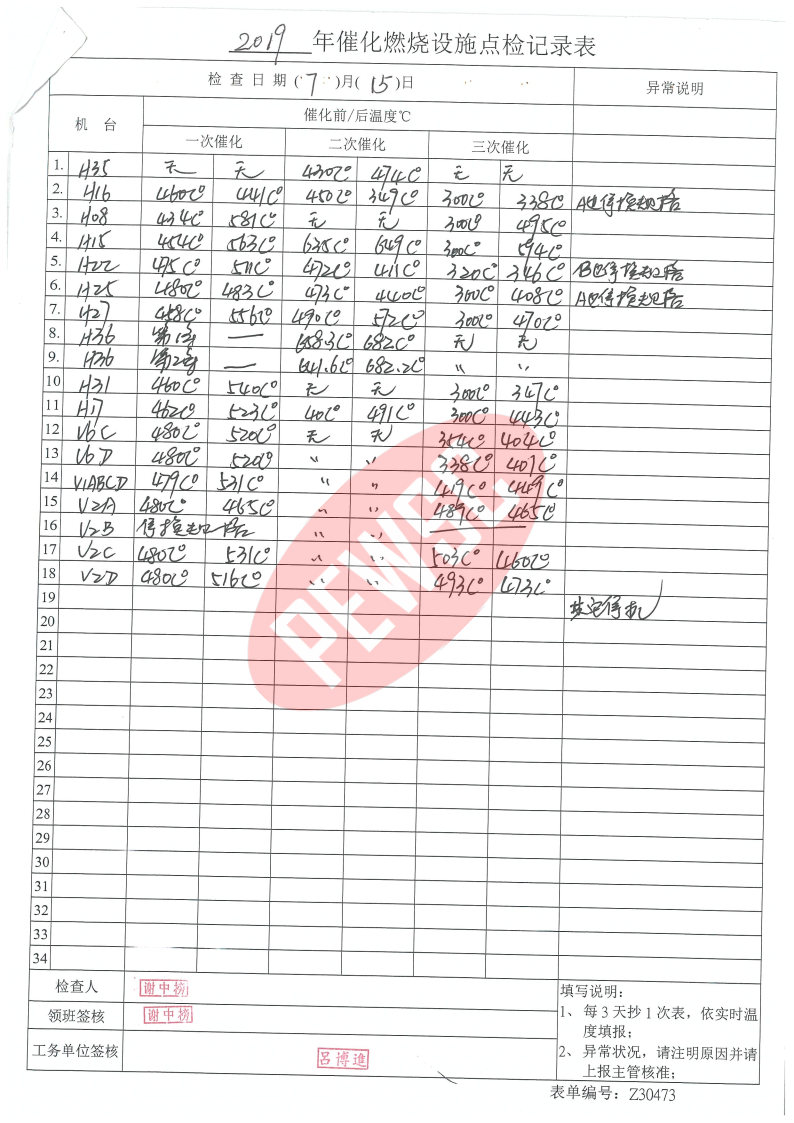 2019 年催化燃烧设施点检记录表
检 查 日 期 (7)月(15)日 异常说明
机 台 催化前/后温度℃
一次催化 二次催化 三次催化
1. H35 无 无 430C° 474C° 无 无
2. H16 460C° 441C° 450C° 349C° 300C° 338C°
3. H08 434C° 581C° 无 无 300C° 495C°
4. H15 454C° 563C° 635C° 649C° 300C° 594C°
5. H22 475C° 511C° 472C° 411C° 320C° 346C°
6. H25 480C° 483C° 473C° 440C° 300C° 408C°
7. H27 458C° 556C° 490C° 572C° 300C° 470C°
8. H36 — 658.3C° 682C° 无 无
9. H36 — 641.6C° 682.2C° 〃 〃
10 H31 460C° 540C° 无 无 300C° 347C°
11 H17 462C° 523C° 40C° 491C° 300C° 443C°
12 V6C 480C° 520C° 无 无 354C° 404C°
13 V6D 480C° 520C° 〃 〃 338C° 407C°
14 V1ABCD 479C° 531C° 〃 〃 419C° 449C°
15 V2A 480C° 465C° 〃 〃 489C° 465C°
16 V2B 〃 〃
17 V2C 480C° 531C° 〃 〃 503C° 460C°
18 V2D 480C° 516C° 〃 〃 493C° 473C°
19
20
21
22
23
24
25
26
27
28
29
30
31
32
33
34
PEWSC
检查人 谢中榜
领班签核 谢中榜
工务单位签核 吕博進
填写说明：
1、每3天抄1次表，依实时温
度填报；
2、异常状况，请注明原因并请
上报主管核准；
表单编号：Z30473